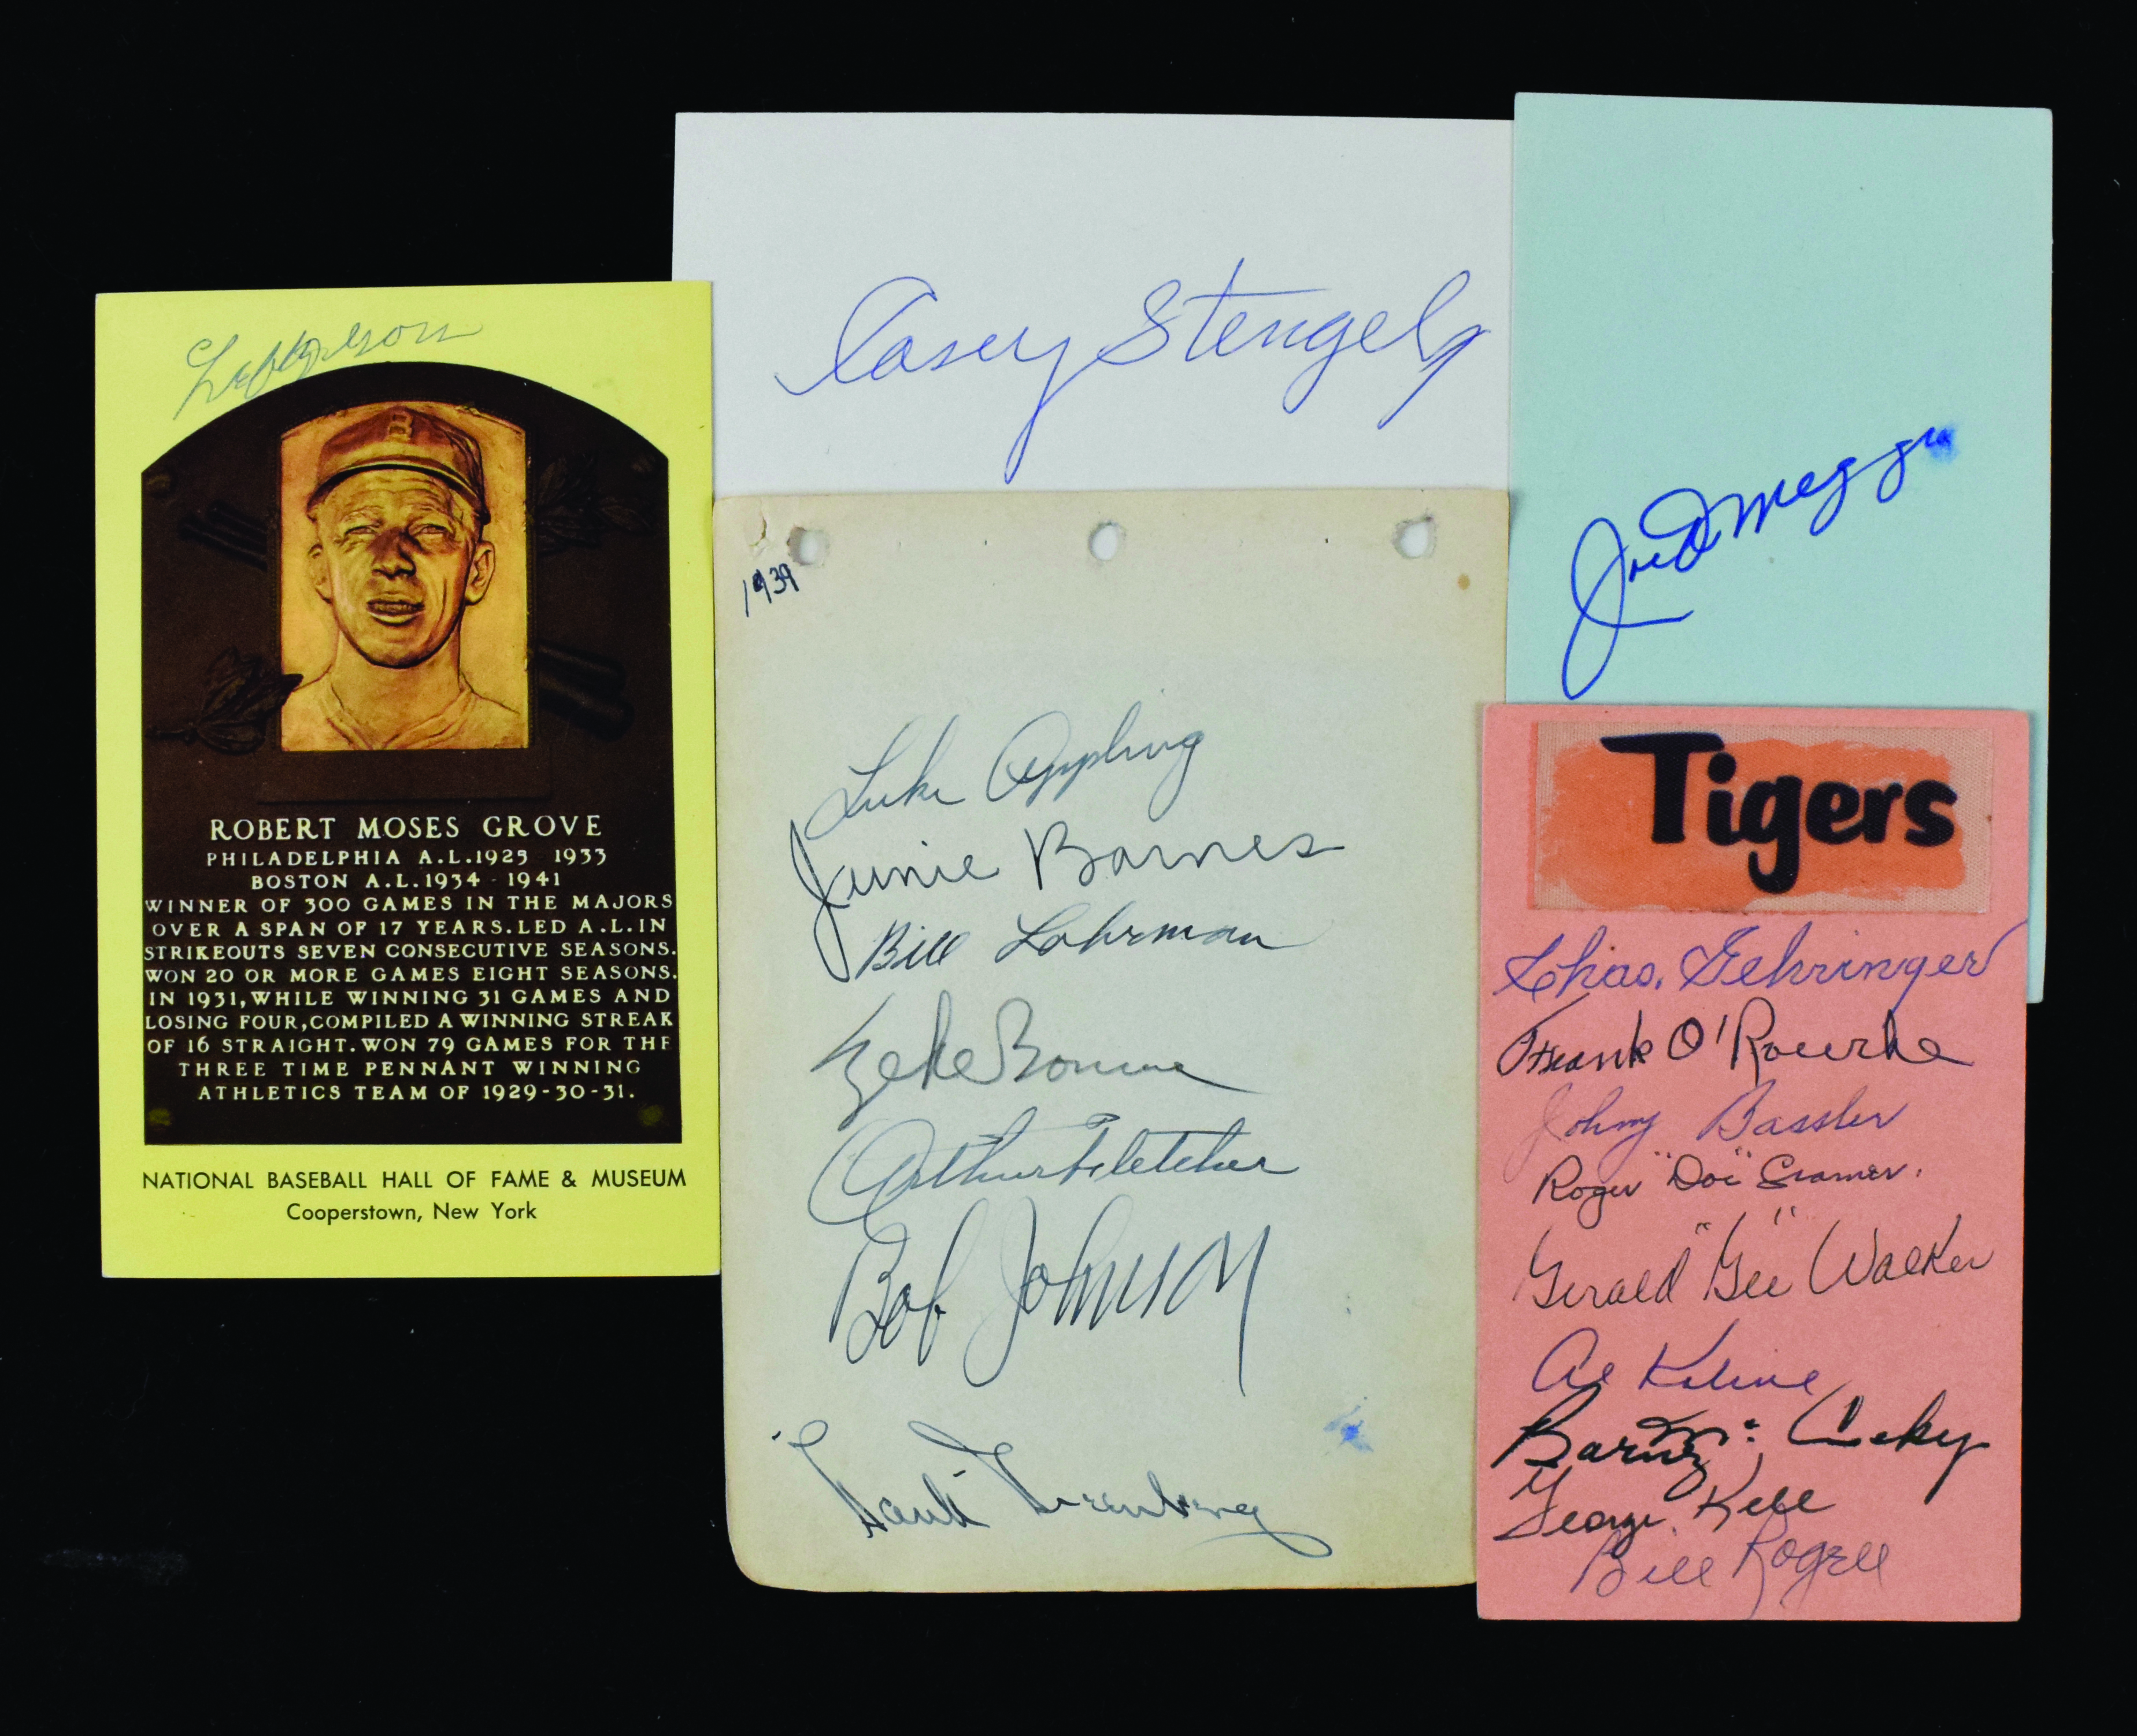 Lefty Grove
ROBERT MOSES GROVE
PHILADELPHIA A.L. 1925 1933
BOSTON A.L. 1934 - 1941
WINNER OF 300 GAMES IN THE MAJORS
OVER A SPAN OF 17 YEARS. LED A.L. IN
STRIKEOUTS SEVEN CONSECUTIVE SEASONS.
WON 20 OR MORE GAMES EIGHT SEASONS.
IN 1931, WHILE WINNING 31 GAMES AND
LOSING FOUR, COMPILED A WINNING STREAK
OF 16 STRAIGHT. WON 79 GAMES FOR THE
THREE TIME PENNANT WINNING
ATHLETICS TEAM OF 1929-30-31.
NATIONAL BASEBALL HALL OF FAME & MUSEUM
Cooperstown, New York
Casey Stengel
1939
Luke Appling
Junie Barnes
Bill Lohrman
Zeke Bonura
Arthur Fletcher
Bob Johnson
Hank Greenberg
Joe DiMaggio
Tigers
Chas. Gehringer
Frank O'Rourke
Johny Bassler
Roger "Doc" Cramer.
Gerald "Gee" Walker
Al Kaline
Barney McCosky
George Kell
Bill Rogell